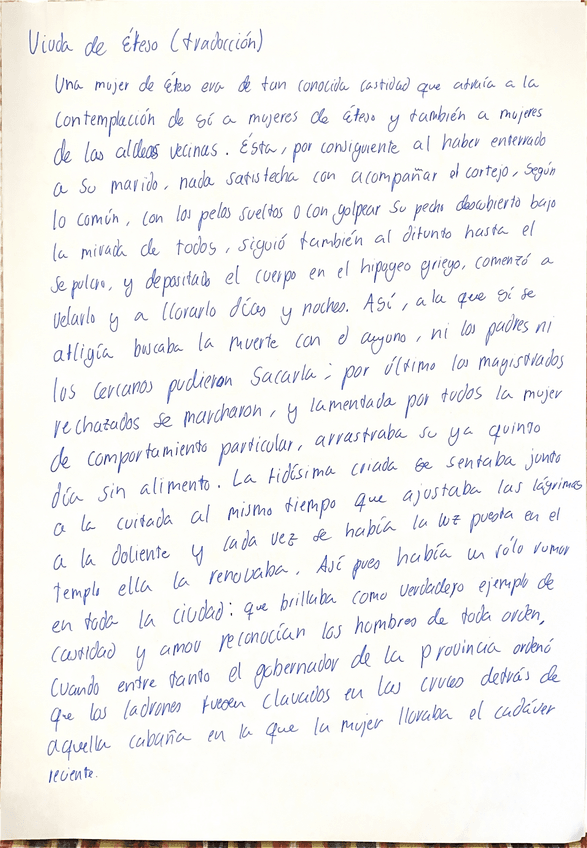 Viuda de Éfeso (traducción)
Una mujer de Éfeso era de tan conocida castidad que atraía a la
contemplación de sí a mujeres de Éfeso y también a mujeres
de las aldeas vecinas. Ésta, por consiguiente al haber enterrado
a su marido, nada satisfecha con acompañar el cortejo, según
lo común, con los pelos sueltos o con golpear su pecho descubierto bajo
la mirada de todos, siguió también al difunto hasta el
sepulcro, y depositado el cuerpo en el hipogeo griego, comenzó a
velarlo y a llorarlo días y noches. Así, a la que sí se
afligía buscaba la muerte con el ayuno, ni los padres ni
los cercanos pudieron sacarla; por último los magistrados
rechazados se marcharon, y lamentada por todos la mujer
de comportamiento particular, arrastraba su ya quinto
día sin alimento. La fidísima criada se sentaba junto
a la cuitada al mismo tiempo que ajustaba las lágrimas
a la doliente y cada vez se había la luz puesta en el
templo ella la renovaba. Así pues había un sólo rumor
en toda la ciudad: que brillaba como verdadero ejemplo de
castidad y amor reconocían los hombres de toda orden,
cuando entre tanto el gobernador de la provincia ordenó
que los ladrones fuesen clavados en las cruces detrás de
aquella cabaña en la que la mujer lloraba el cadáver
reciente.